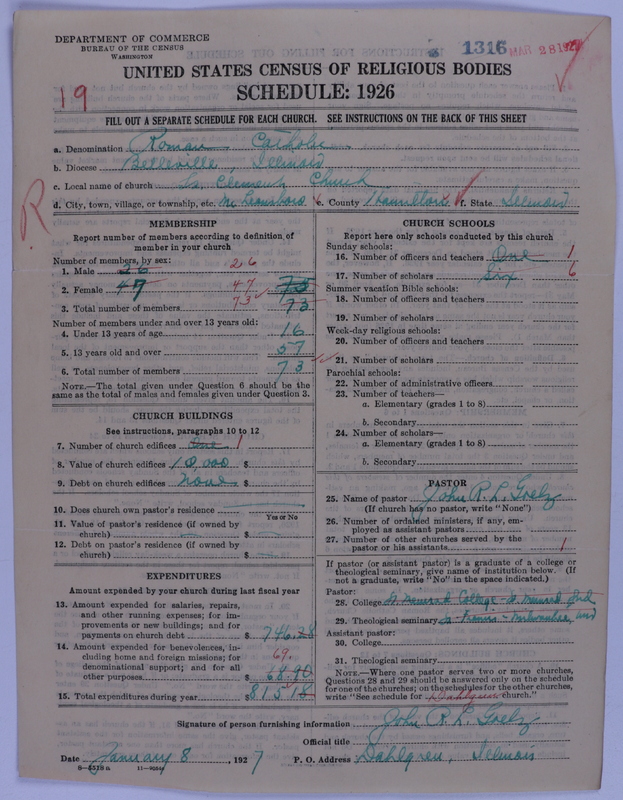 DEPARTMENT OF COMMERCE
BUREAU OF THE CENSUS
WASHINGTON
1316 MAR 28 1927
UNITED STATES CENSUS OF RELIGIOUS BODIES
SCHEDULE: 1926
19
FILL OUT A SEPARATE SCHEDULE FOR EACH CHURCH. SEE INSTRUCTIONS ON THE BACK OF THIS SHEET
a. Denomination Roman Catholic
b. Diocese Belleville, Illinois
c. Local name of church St. Clement's Church
d. City, town, village, or township, etc. McLeansboro e. County Hamilton f. State Illinois
R
MEMBERSHIP
Report number of members according to definition of
member in your church
Number of members, by sex:
1. Male 26 26
2. Female 47 47 73
3. Total number of members 73 73
Number of members under and over 13 years old:
4. Under 13 years of age 16
5. 13 years old and over 57
6. Total number of members 73
NOTE.—The total given under Question 6 should be the
same as the total of males and females given under Question 3.
CHURCH BUILDINGS
See instructions, paragraphs 10 to 12
7. Number of church edifices One 1
8. Value of church edifices 10,000 $
9. Debt on church edifices None $
10. Does church own pastor's residence
Yes or No
11. Value of pastor's residence (if owned by
church) $
12. Debt on pastor's residence (if owned by
church) $
EXPENDITURES
Amount expended by your church during last fiscal year
13. Amount expended for salaries, repairs,
and other running expenses; for im-
provements or new buildings; and for
payments on church debt $ 746.28
14. Amount expended for benevolences, in-
cluding home and foreign missions; for
denominational support; and for all
other purposes 69. 68.90
15. Total expenditures during year $815.18
CHURCH SCHOOLS
Report here only schools conducted by this church
Sunday schools:
16. Number of officers and teachers One 1
17. Number of scholars Six 6
Summer vacation Bible schools:
18. Number of officers and teachers
19. Number of scholars
Week-day religious schools:
20. Number of officers and teachers
21. Number of scholars
Parochial schools:
22. Number of administrative officers
23. Number of teachers—
a. Elementary (grades 1 to 8)
b. Secondary
24. Number of scholars—
a. Elementary (grades 1 to 8)
b. Secondary
PASTOR
25. Name of pastor John R. L. Goelz
(If church has no pastor, write "None")
26. Number of ordained ministers, if any, em-
ployed as assistant pastors
27. Number of other churches served by the
pastor or his assistants 1
If pastor (or assistant pastor) is a graduate of a college or
theological seminary, give name of institution below. (If
not a graduate, write "No" in the space indicated.)
Pastor:
28. College St. Meinrad College - St. Meinrad Ind
29. Theological seminary St. Francis - Milwaukee, Wis
Assistant pastor:
30. College
31. Theological seminary
NOTE.—Where one pastor serves two or more churches,
Questions 28 and 29 should be answered only on the schedule
for one of the churches; on the schedules for the other churches,
write "See schedule for Dahlgren church."
Signature of person furnishing information John R. L. Goelz
Official title
Date January 8, 1927 P. O. Address Dahlgren, Illinois